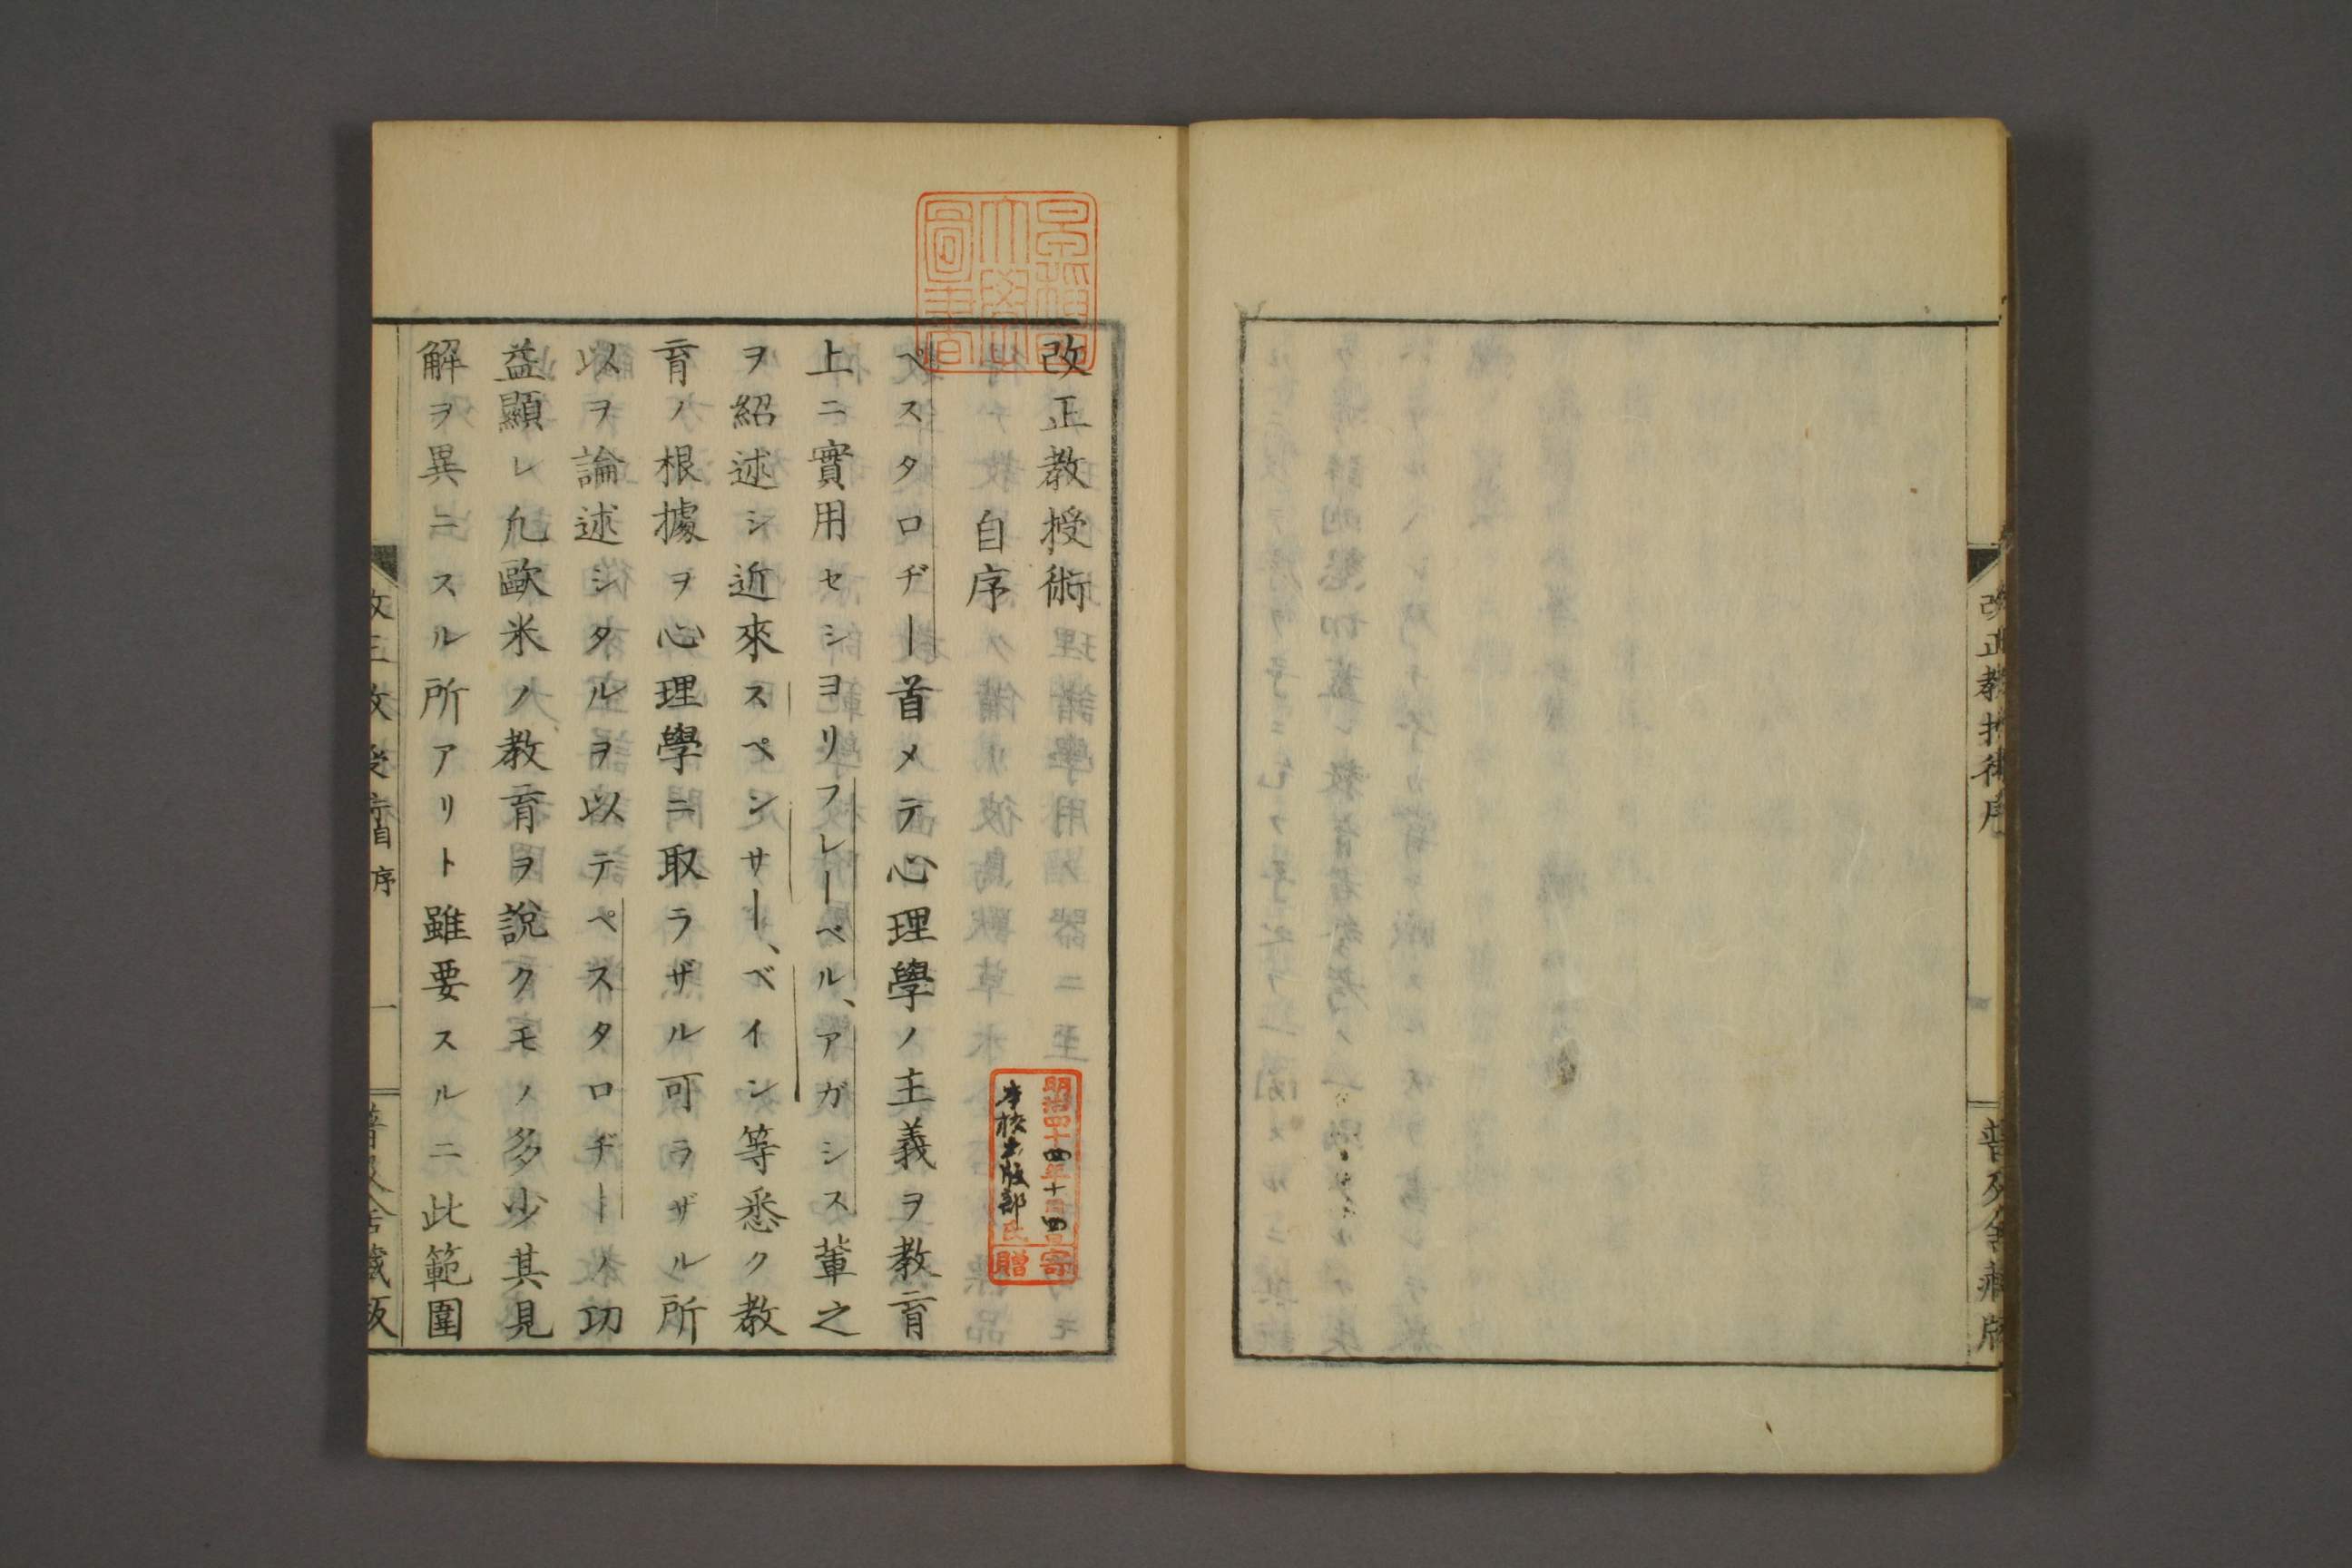 改正教授術序
普及舍藏版
改正教授術
自序
ペスタロヂー首メテ心理學ノ主義ヲ教育
上ニ實用セシヨリフレーベル、アガシス輩之
ヲ紹述シ近來スペンサー、ベイン等悉ク教
育ノ根據ヲ心理學ニ取ラザル可ラザル所
以ヲ論述シタルヲ以テペスタロヂーノ功
益顯レ凢歐米ノ教育ヲ說クモノ多少其見
解ヲ異ニスル所アリト雖要スルニ此範圍
改正教授術 自序
一
普及舍藏版
明治四十四年十月四日寄贈
本校出版部氏